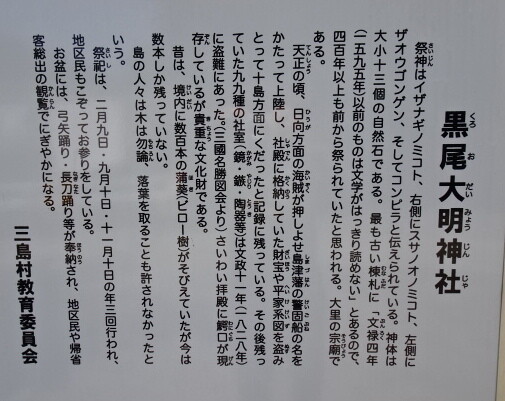 黒尾大明神社
くろおだいみょうじんじゃ
祭神はイザナギノミコト、右側にスサノオノミコト、左側に
ザオウゴンゲン、そしてコンピラと伝えられている。神体は
大小十三個の自然石である。最も古い棟札に「文禄四年
(一五九五年)以前のものは文字がはっきり読めない」とあるので、
四百年以上も前から祭られていたと思われる。大里の宗廟で
ある。
天正の頃、日向方面の海賊が押しよせ島津藩の警固船の名を
かたって上陸し、社殿に格納していた財宝や平家系図を盗み
とって十島方面にくだったと記録に残っている。その後残っ
ていた九九種の社宝(鏡・鏃・陶器等)は文政十一年(一八二八年)
に盗難にあった。(三國名勝図会より)さいわい拝殿に鰐口が現
存しているが貴重な文化財である。
昔は、境内に数百本の蒲葵(ビロー樹)がそびえていたが今は
数本しか残っていない。
島の人々は木は勿論、落葉を取ることも許されなかったと
いう。
祭祀は、二月九日・九月十日・十一月十日の年三回行われ、
地区民もこぞってお参りをしている。
お盆には、弓矢踊り・長刀踊り等が奉納され、地区民や帰省
客総出の観覧でにぎやかになる。
三島村教育委員会